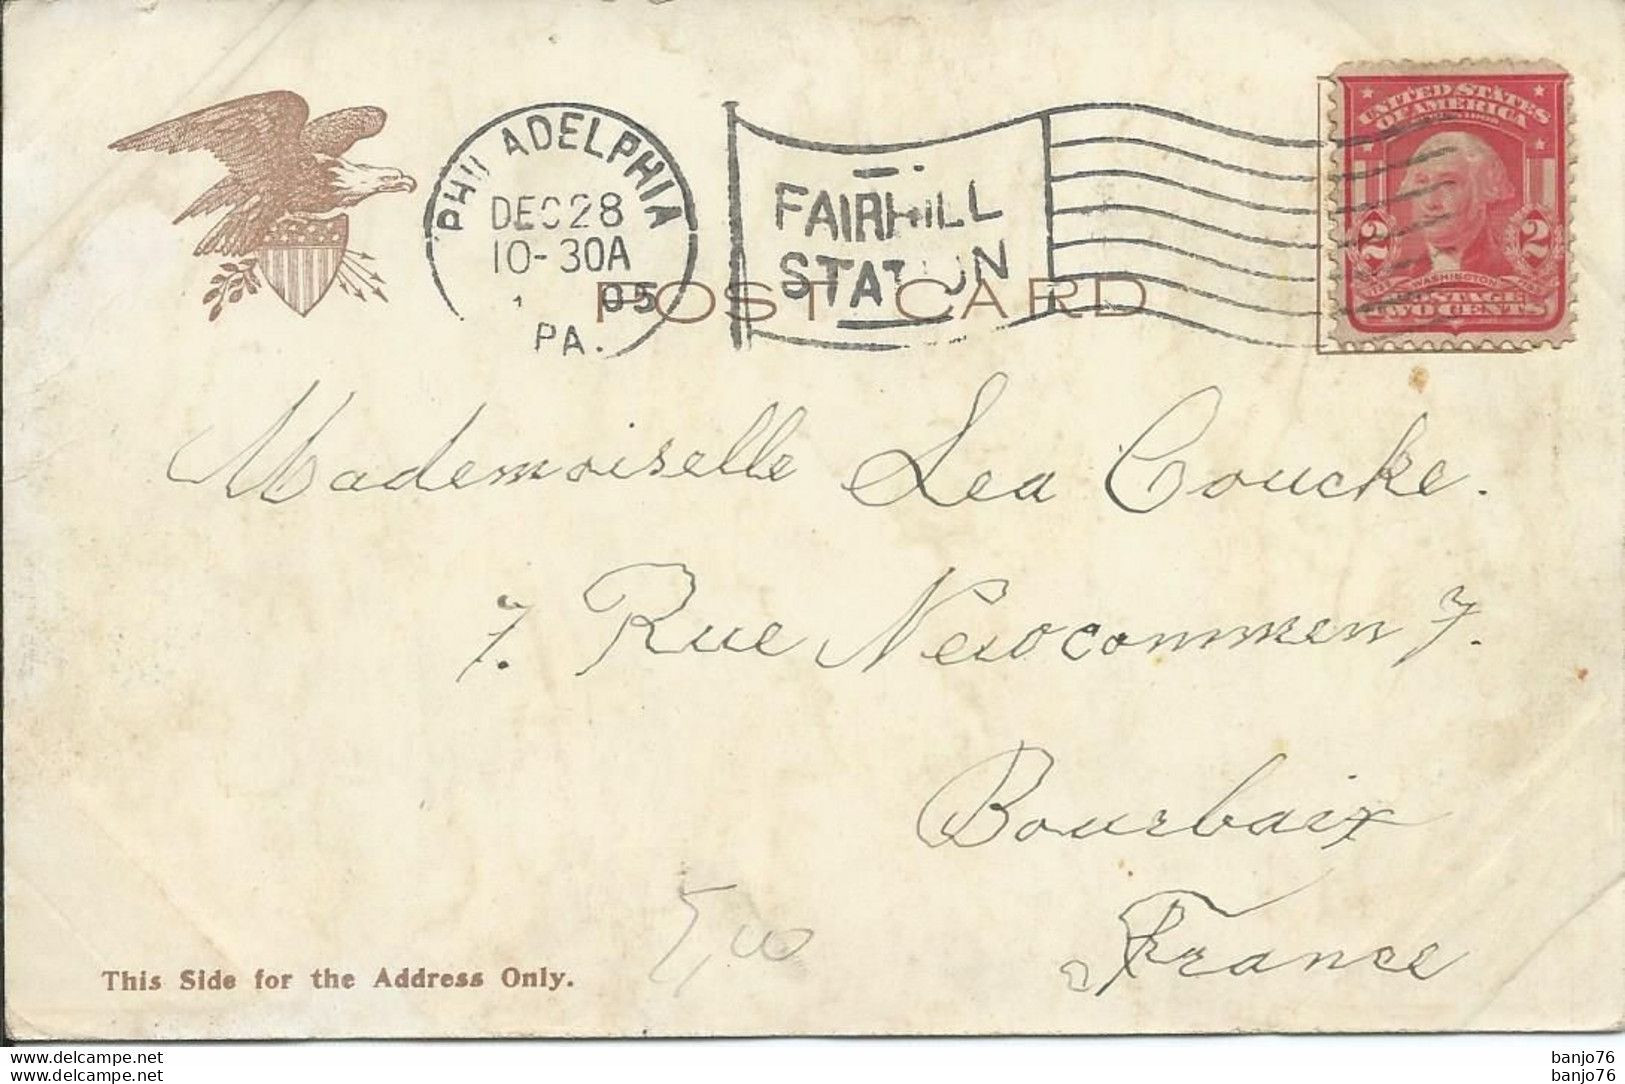 PHILADELPHIA
DEC 28
10-30A
05
PA.
FAIRHILL
STATION
UNITED STATES
OF AMERICA
SERIES 1902
2 2
WASHINGTON
POSTAGE
TWO CENTS
POST CARD
Mademoiselle Lea Coucke.
7. Rue Newcommen 7.
Bourbaix
France
5,00
This Side for the Address Only.
www.delcampe.net banjo76
www.delcampe.net banjo76